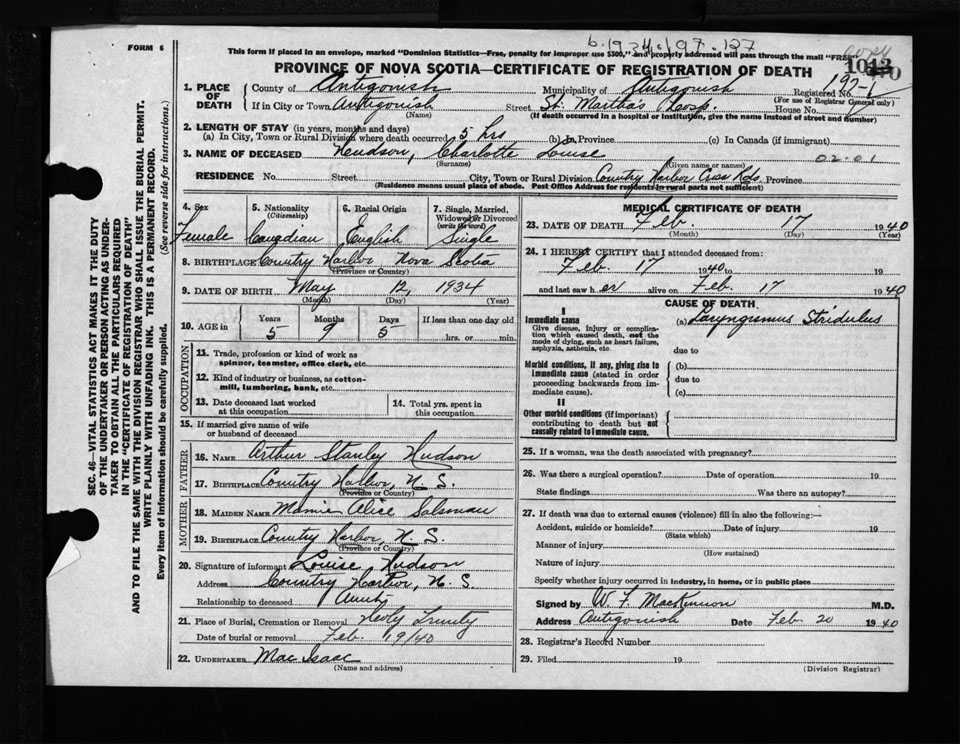 b. 1934. 197. 127
FORM 6
This form if placed in an envelope, marked "Dominion Statistics—Free, penalty for improper use $300," and properly addressed will pass through the mail "FREE"
PROVINCE OF NOVA SCOTIA—CERTIFICATE OF REGISTRATION OF DEATH
1. PLACE OF DEATH
County of Antigonish Municipality of Antigonish Registered No.
(For use of Registrar General only)
If in City or Town Antigonish Street St. Martha's Hosp. House No.
(Name) (If death occurred in a hospital or institution, give the name instead of street and number)
2. LENGTH OF STAY (in years, months and days)
(a) In City, Town or Rural Division where death occurred 5 hrs (b) In Province (c) In Canada (if immigrant)
3. NAME OF DECEASED Hudson, Charlotte Louise
(Surname) (Given name or names)
02-01
RESIDENCE No. Street City, Town or Rural Division Country Harbor Cross Rds. Province
(Residence means usual place of abode. Post Office Address for residents in rural parts not sufficient)
4. Sex 5. Nationality (Citizenship) 6. Racial Origin 7. Single, Married, Widowed or Divorced (write the word)
Female Canadian English Single
8. BIRTHPLACE Country Harbor Nova Scotia
(Province or Country)
9. DATE OF BIRTH May 12, 1934
(Month) (Day) (Year)
10. AGE in Years Months Days If less than one day old
5 9 5 hrs. or min.
OCCUPATION
11. Trade, profession or kind of work as spinner, teamster, office clerk, etc.
12. Kind of industry or business, as cotton-mill, lumbering, bank, etc.
13. Date deceased last worked at this occupation
14. Total yrs. spent in this occupation
15. If married give name of wife or husband of deceased
FATHER
16. NAME Arthur Stanley Hudson
17. BIRTHPLACE Country Harbor, N. S.
(Province or Country)
MOTHER
18. MAIDEN NAME Mamie Alice Salsman
19. BIRTHPLACE Country Harbor, N. S.
(Province or Country)
20. Signature of informant Louise Hudson
Address Country Harbor, N. S.
Relationship to deceased Aunt
21. Place of Burial, Cremation or Removal Holy Trinity
Date of burial or removal Feb. 19/40
22. UNDERTAKER MacIsaac
(Name and address)
MEDICAL CERTIFICATE OF DEATH
23. DATE OF DEATH Feb. 17 1940
(Month) (Day) (Year)
24. I HEREBY CERTIFY that I attended deceased from:
Feb. 17 1940 to 19
and last saw her alive on Feb. 17 1940
CAUSE OF DEATH
I
Immediate cause
Give disease, injury or complication which caused death, not the mode of dying, such as heart failure, asphyxia, asthenia, etc.
(a) Laryngismus Stridulus
due to
Morbid conditions, if any, giving rise to immediate cause (stated in order proceeding backwards from immediate cause).
(b)
due to
(c)
II
Other morbid conditions (if important) contributing to death but not causally related to immediate cause.
25. If a woman, was the death associated with pregnancy?
26. Was there a surgical operation? Date of operation 19
State findings Was there an autopsy?
27. If death was due to external causes (violence) fill in also the following:—
Accident, suicide or homicide? Date of injury 19
(State which)
Manner of injury
(How sustained)
Nature of injury
Specify whether injury occurred in industry, in home, or in public place
Signed by W. F. MacKinnon M.D.
Address Antigonish Date Feb. 20 1940
28. Registrar's Record Number
29. Filed 19
(Division Registrar)
SEC. 46—VITAL STATISTICS ACT MAKES IT THE DUTY
OF THE UNDERTAKER OR PERSON ACTING AS UNDERTAKER
TO OBTAIN ALL THE PARTICULARS REQUIRED
IN THE "CERTIFICATE OF REGISTRATION OF DEATH"
AND TO FILE THE SAME WITH THE DIVISION REGISTRAR WHO SHALL ISSUE THE BURIAL PERMIT.
WRITE PLAINLY WITH UNFADING INK. THIS IS A PERMANENT RECORD.
Every item of information should be carefully supplied. (See reverse side for instructions.)